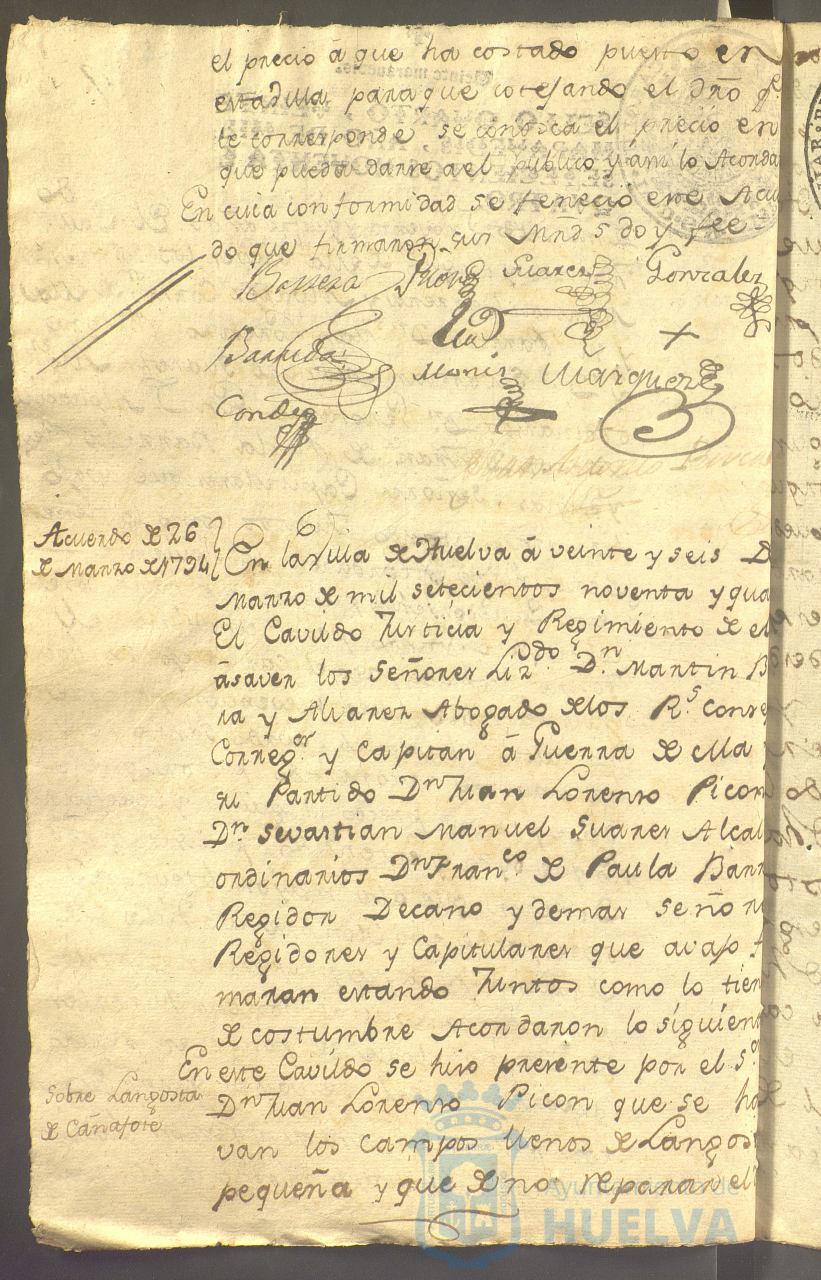 el precio á que ha costado puesto en
esta villa para que cotejando el dro qe.
le corresponde se conosca el precio en
que pueda darse a el publico y ami lo Acorda
En cuia conformidad se feneció este Acu
do que firmaron sus Mrds doy fee
Barrera Picon Suarez Gonzalez
Barreda Moniz Marquez
Conde
Acuerdo de 26
de Marzo de 1794
En la villa de Huelva á veinte y seis D
Marzo de mil setecientos noventa y qua
El Cavildo Justicia y Regimiento de el
ásaver los señores Lizdo. Dn. Martin B
ra y Alvarez Abogado de los Rs. conse
Corregor. y Capitan á Guerra de ella
su Partido Dn. Juan Lorenso Picon
Dn. sevastian Manuel Suarez Alcal
ordinarios Dn. Franco. de Paula Barr
Regidor Decano y demas señor
Regidores y Capitulares que avajo f
maran estando Juntos como lo tien
de costumbre Acordaron lo siguient
En este Cavildo se hiso presente por el sor.
Sobre Langosta
de Cañafote
Dn. Juan Lorenso Picon que se ha
van los campos llenos de Langos
pequeña y que de no reparar el
Ayuntamiento de
HUELVA